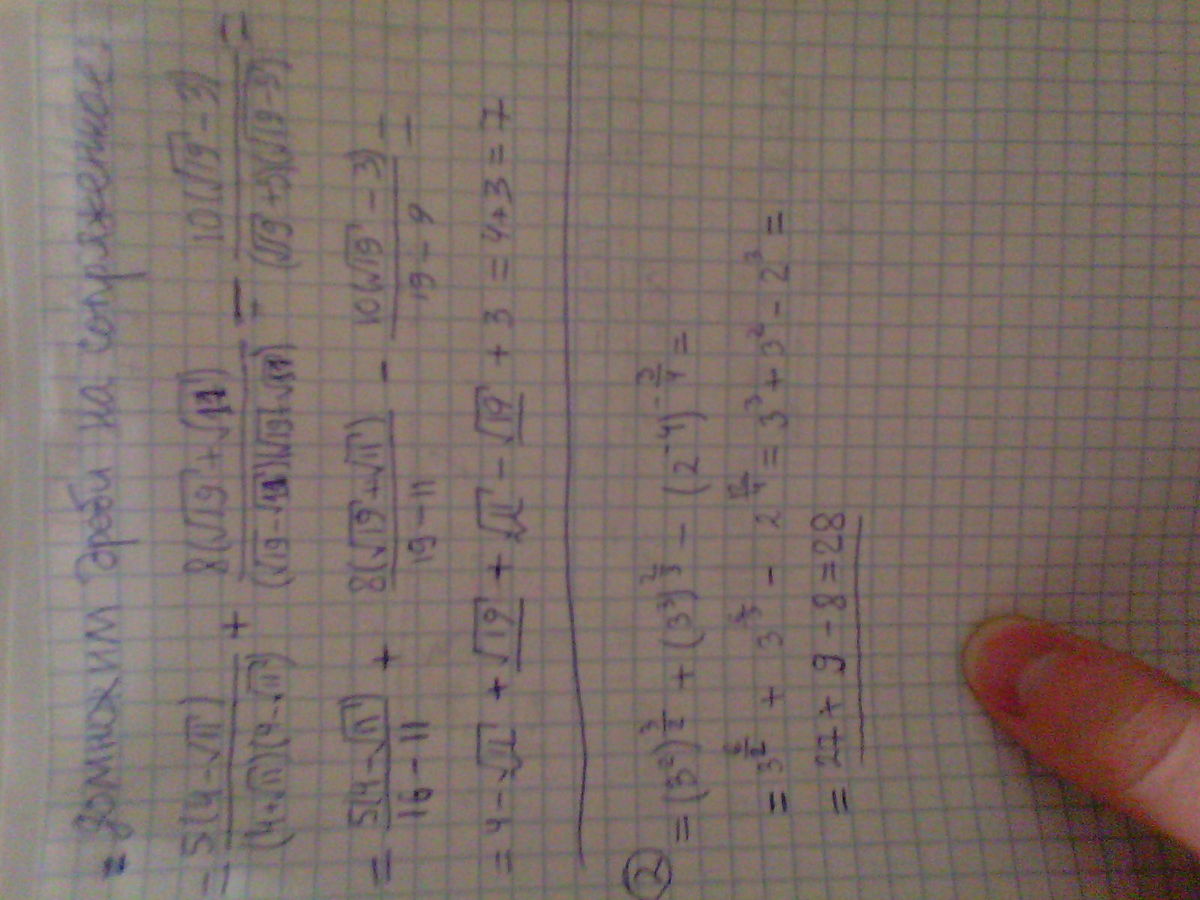 = домножим дроби на сопряженное:
= 5(4-√11)/(4+√11)(4-√11) + 8(√19+√11)/(√19-√11)(√19+√11) - 10(√19-3)/(√19+3)(√19-3) =
= 5(4-√11)/16-11 + 8(√19+√11)/19-11 - 10(√19-3)/19-9 =
= 4-√11 + √19 + √11 - √19 + 3 = 4+3 = 7
② = (3²)^(3/2) + (3³)^(2/3) - (2⁻⁴)^(-3/4) =
= 3^(6/2) + 3^(6/3) - 2^(12/4) = 3³ + 3² - 2³ =
= 27 + 9 - 8 = 28